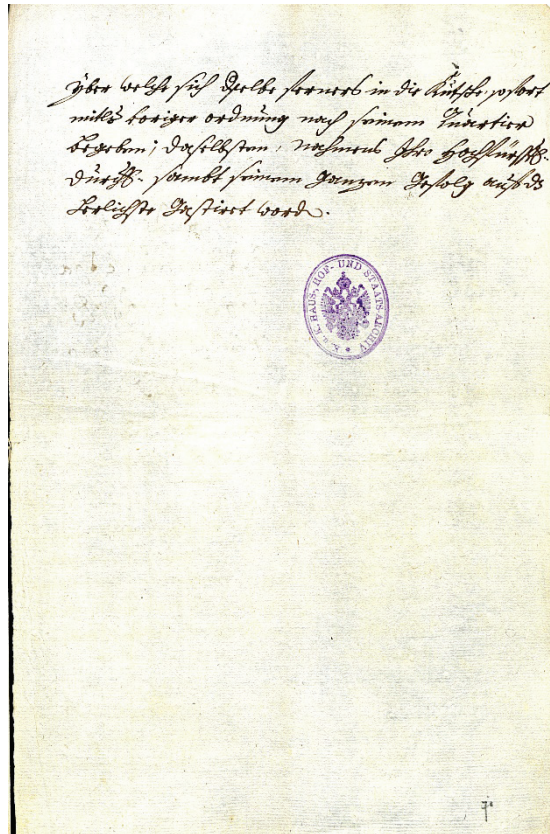 yber welche sich dselbe ferners in die Kutsche, sofort
mitls voriger ordnung nach seinem Quartier
begeben; daselbsten, nahmens Ihro Hochfürstl.
Dürchl. sambt seinem ganzen gefolg aufs
herlichste gastiert word.
K. u. K. HAUS, HOF- UND STAATS-ARCHIV *